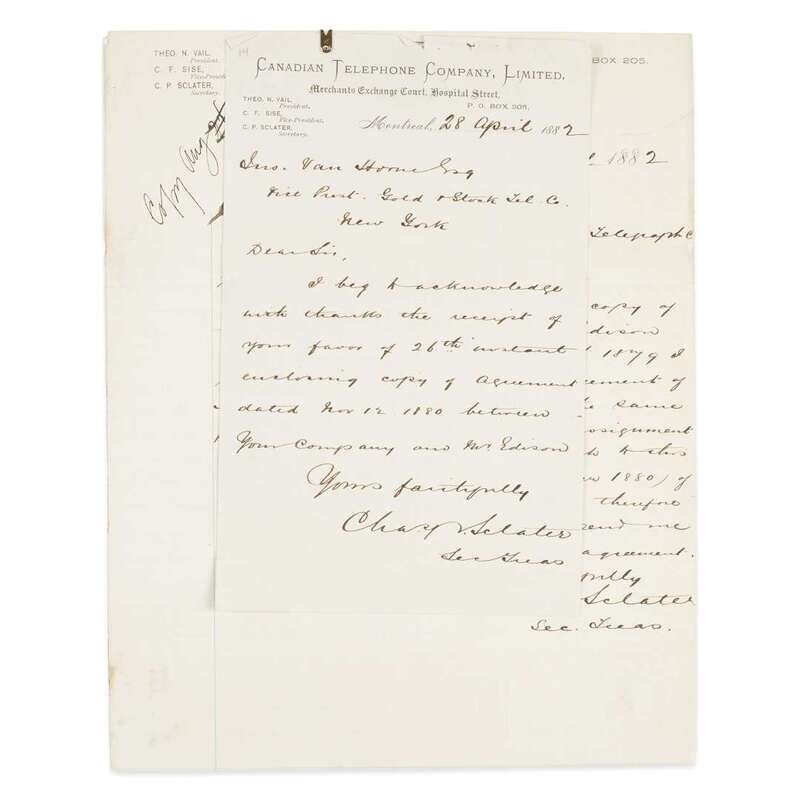 THEO. N. VAIL,
President.
C. F. SISE,
Vice-President
C. P. SCLATER,
Secretary.
Copy Aug
14
CANADIAN TELEPHONE COMPANY, LIMITED.
Merchants Exchange Court, Hospital Street,
P. O. BOX 205.
THEO. N. VAIL,
President.
C. F. SISE,
Vice-President.
C. P. SCLATER,
Secretary.
Montreal, 28 April 1882
Jno. Van Horne Esq
Vice Prest. Gold & Stock Tel. Co.
New York
Dear Sir,
I beg to acknowledge
with thanks the receipt of
your favor of 26th instant
enclosing copy of Agreement
dated Nov 12 1880 between
Your Company and Mr. Edison
Yours faithfully
Chas. P. Sclater
Sec Treas
BOX 205.
1882
Telegraph C
copy of
Edison
1879 I
same
assignment
1880) of
therefore
send me
agreement.
Sclater
Sec. Treas.